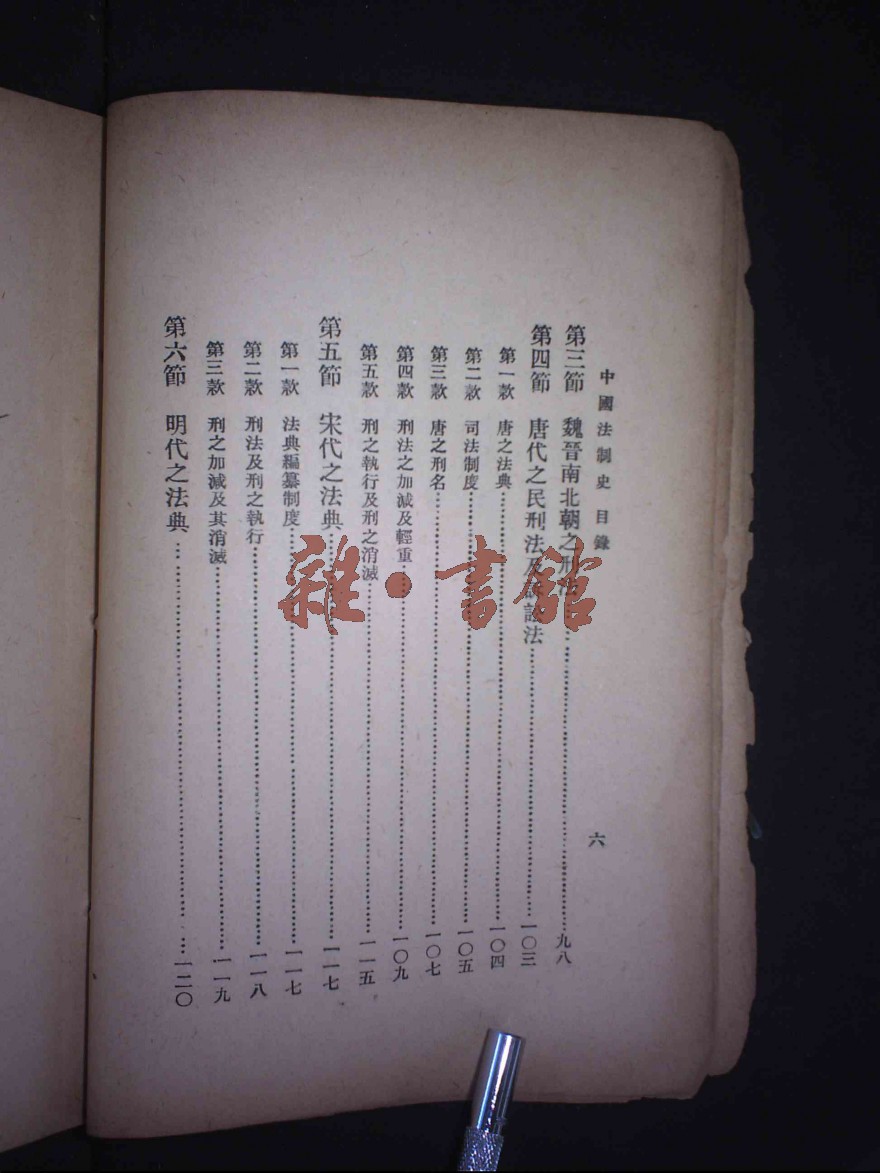 中國法制史 目錄 六
第三節 魏晉南北朝之刑法 九八
第四節 唐代之民刑法及訴訟法 一〇三
第一款 唐之法典 一〇四
第二款 司法制度 一〇五
第三款 唐之刑名 一〇七
第四款 刑法之加減及輕重 一〇九
第五款 刑之執行及刑之消滅 一一五
第五節 宋代之法典 一一七
第一款 法典編纂制度 一一七
第二款 刑法及刑之執行 一一八
第三款 刑之加減及其消滅 一一九
第六節 明代之法典 一二〇
雜·書館